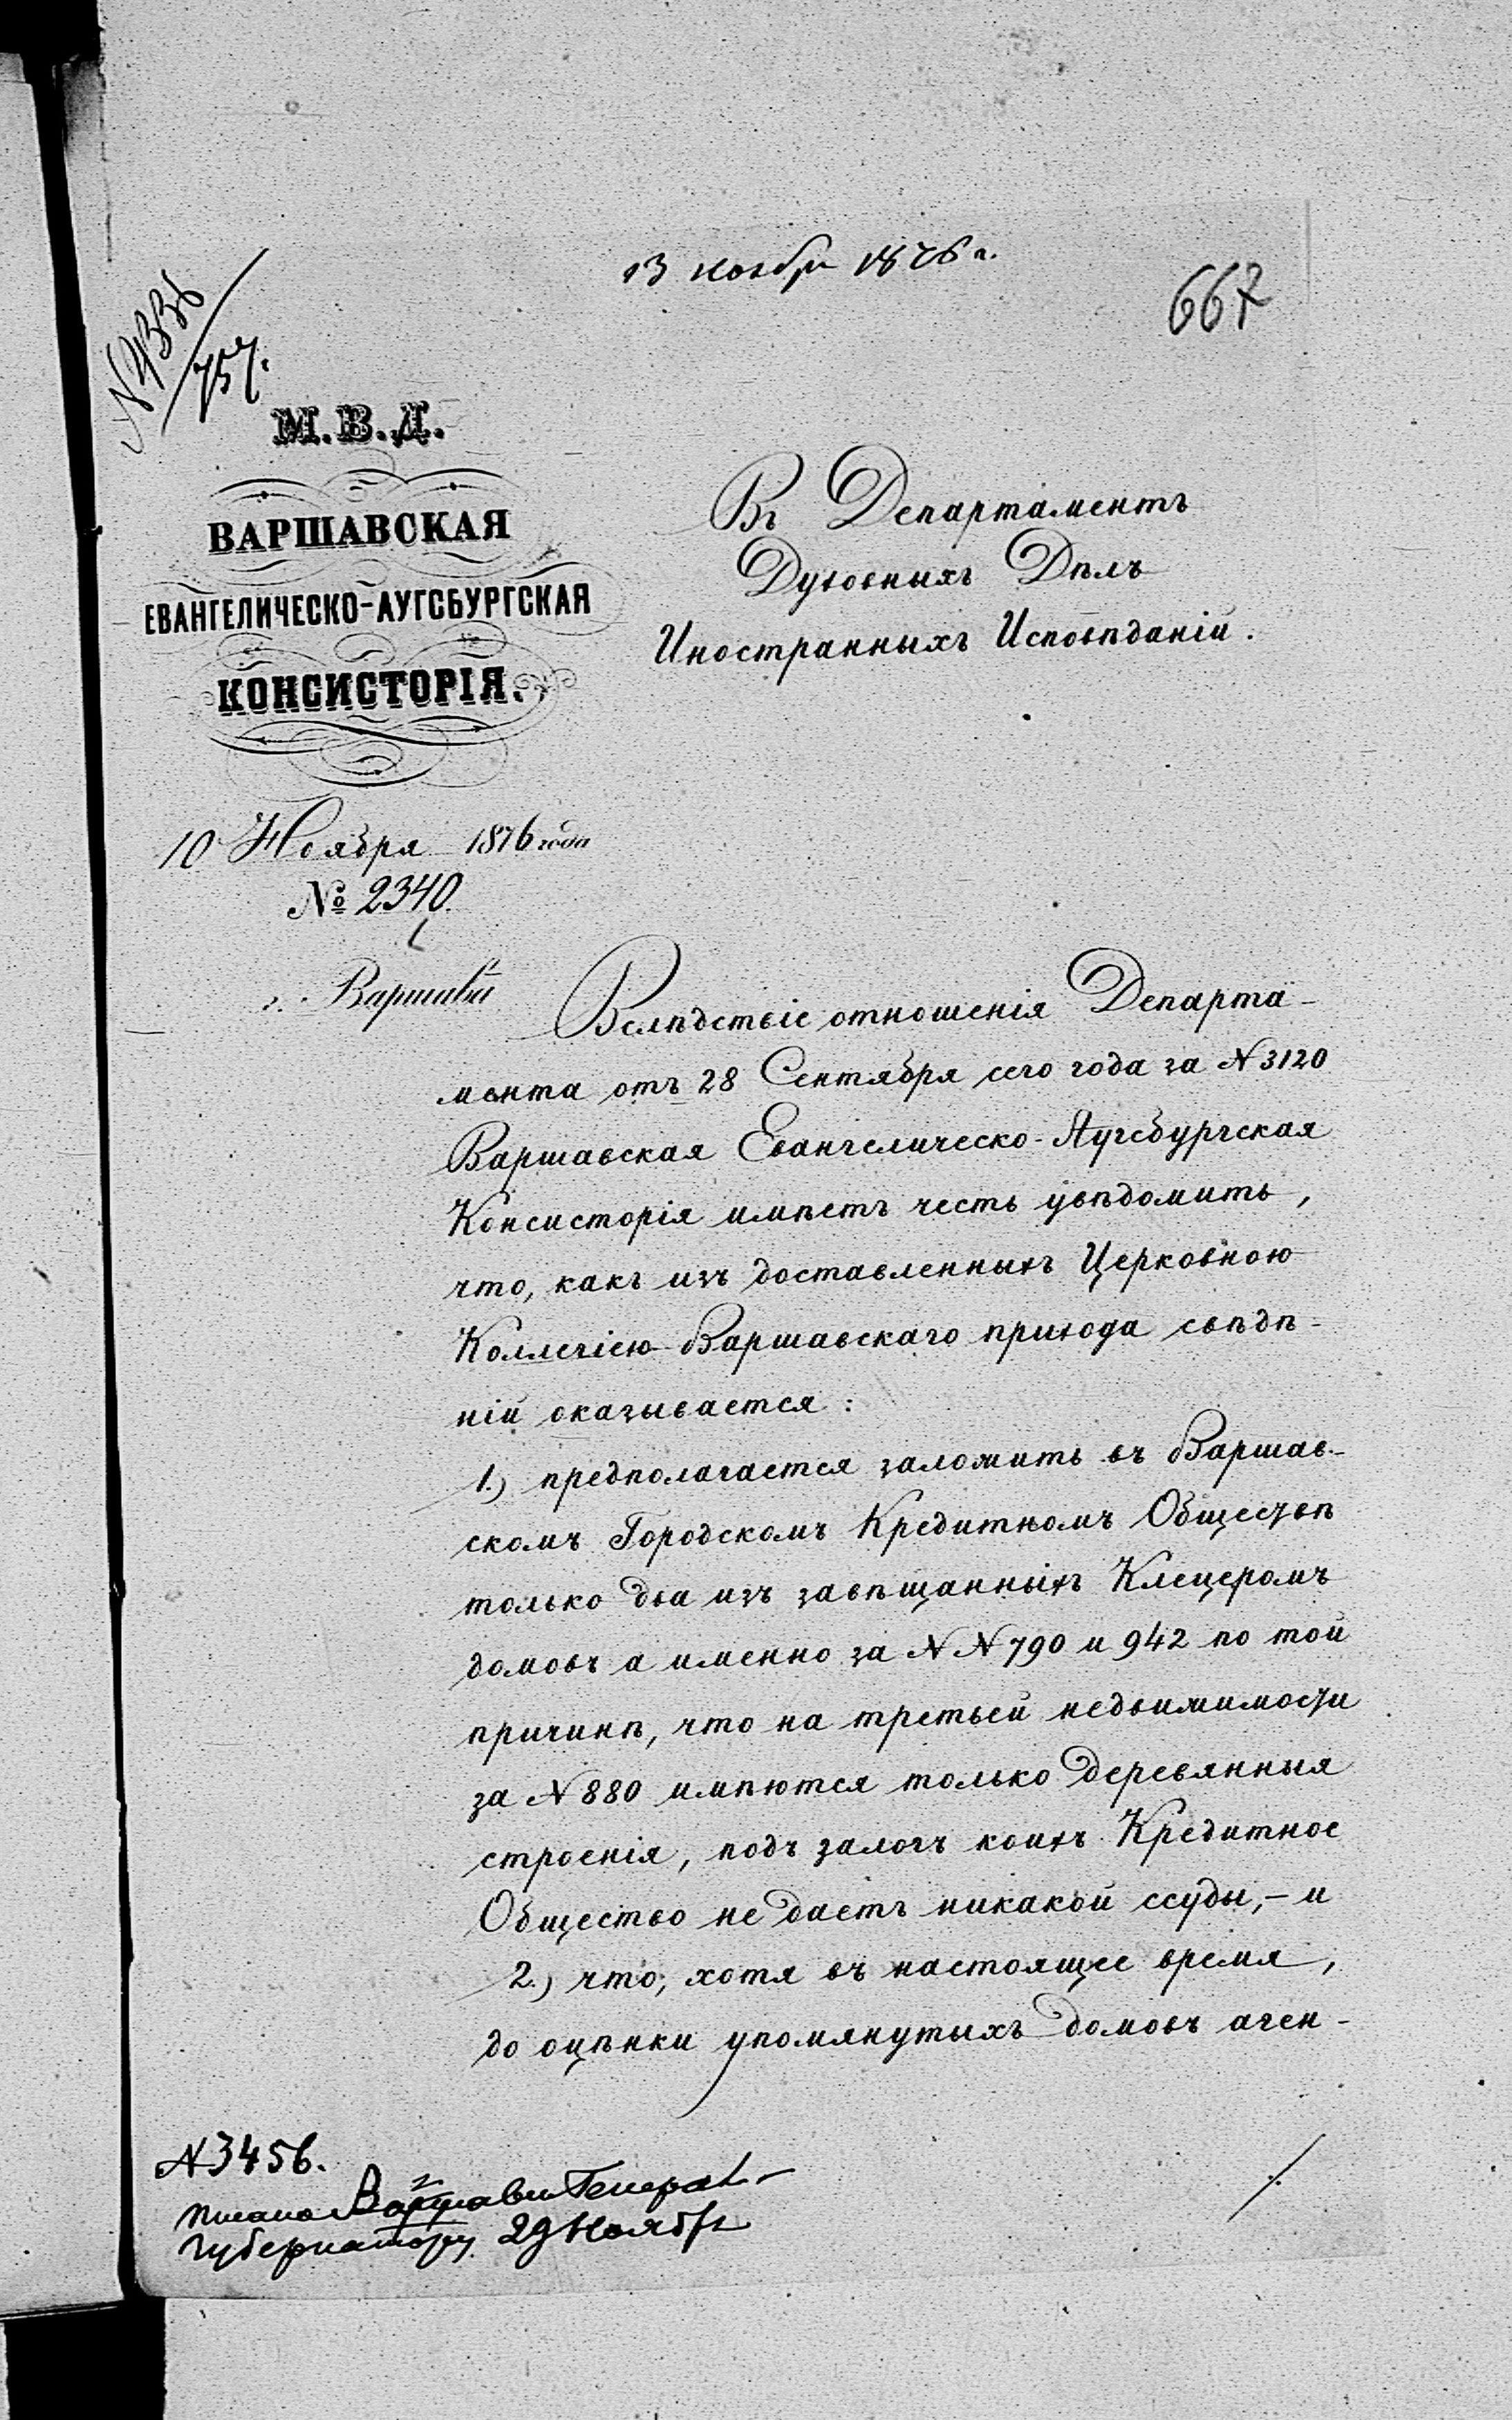 13 ноября 1876 г.
667
М.В.Д.
ВАРШАВСКАЯ
ЕВАНГЕЛИЧЕСКО-АУГСБУРГСКАЯ
КОНСИСТОРІЯ.
10 Ноября 1876 года
№ 2340.
г. Варшава
Въ Департаментъ
Духовныхъ Дѣлъ
Иностранныхъ Исповѣданій.
Вслѣдствіе отношенія Департа-
мента отъ 28 Сентября сего года за N 3120
Варшавская Евангелическо-Аугсбургская
Консисторія имѣетъ честь увѣдомить,
что, какъ изъ доставленныхъ Церковною
Коллегіею Варшавскаго прихода свѣдѣ-
ній оказывается:
1.) предполагается заложить въ Варшав-
скомъ Городскомъ Кредитномъ Обществѣ
только два изъ завѣщанныхъ Клецеромъ
домовъ а именно за N N 790 и 942 по той
причинѣ, что на третьей недвижимости
за N 880 имѣются только деревянныя
строенія, подъ залогъ коихъ Кредитное
Общество не даетъ никакой ссуды, – и
2.) что, хотя въ настоящее время,
до оцѣнки упомянутыхъ домовъ аген-
N 3456.
Писано Варшавск Генерал-
губернатору 29 Ноября